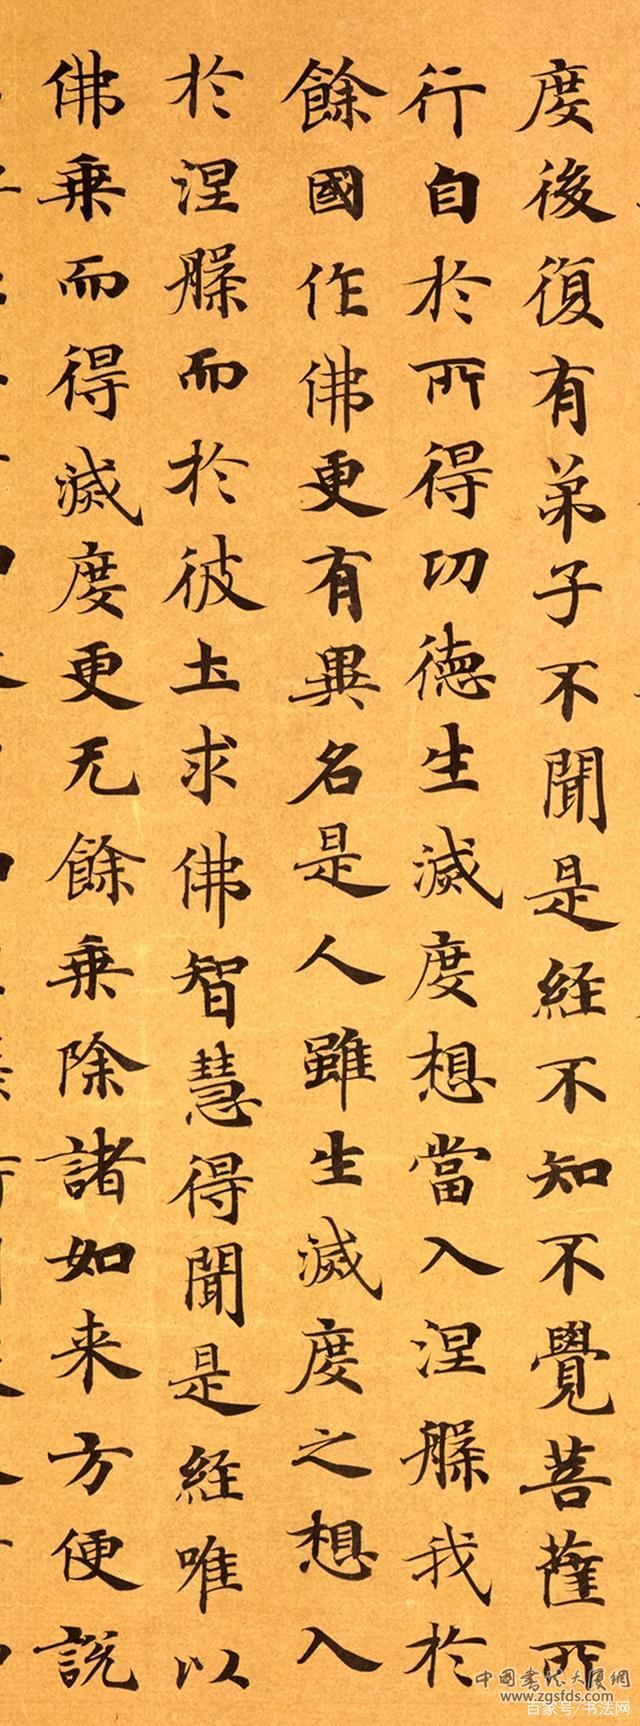 度後復有弟子不聞是経不知不覺菩薩所
行自於所得功德生滅度想當入涅槃我於
餘國作佛更有異名是人雖生滅度之想入
於涅槃而於彼土求佛智慧得聞是経唯以
佛乗而得滅度更无餘乗除諸如来方便說
中國書法大厦網
www.zgsfds.com
百家号/书法网